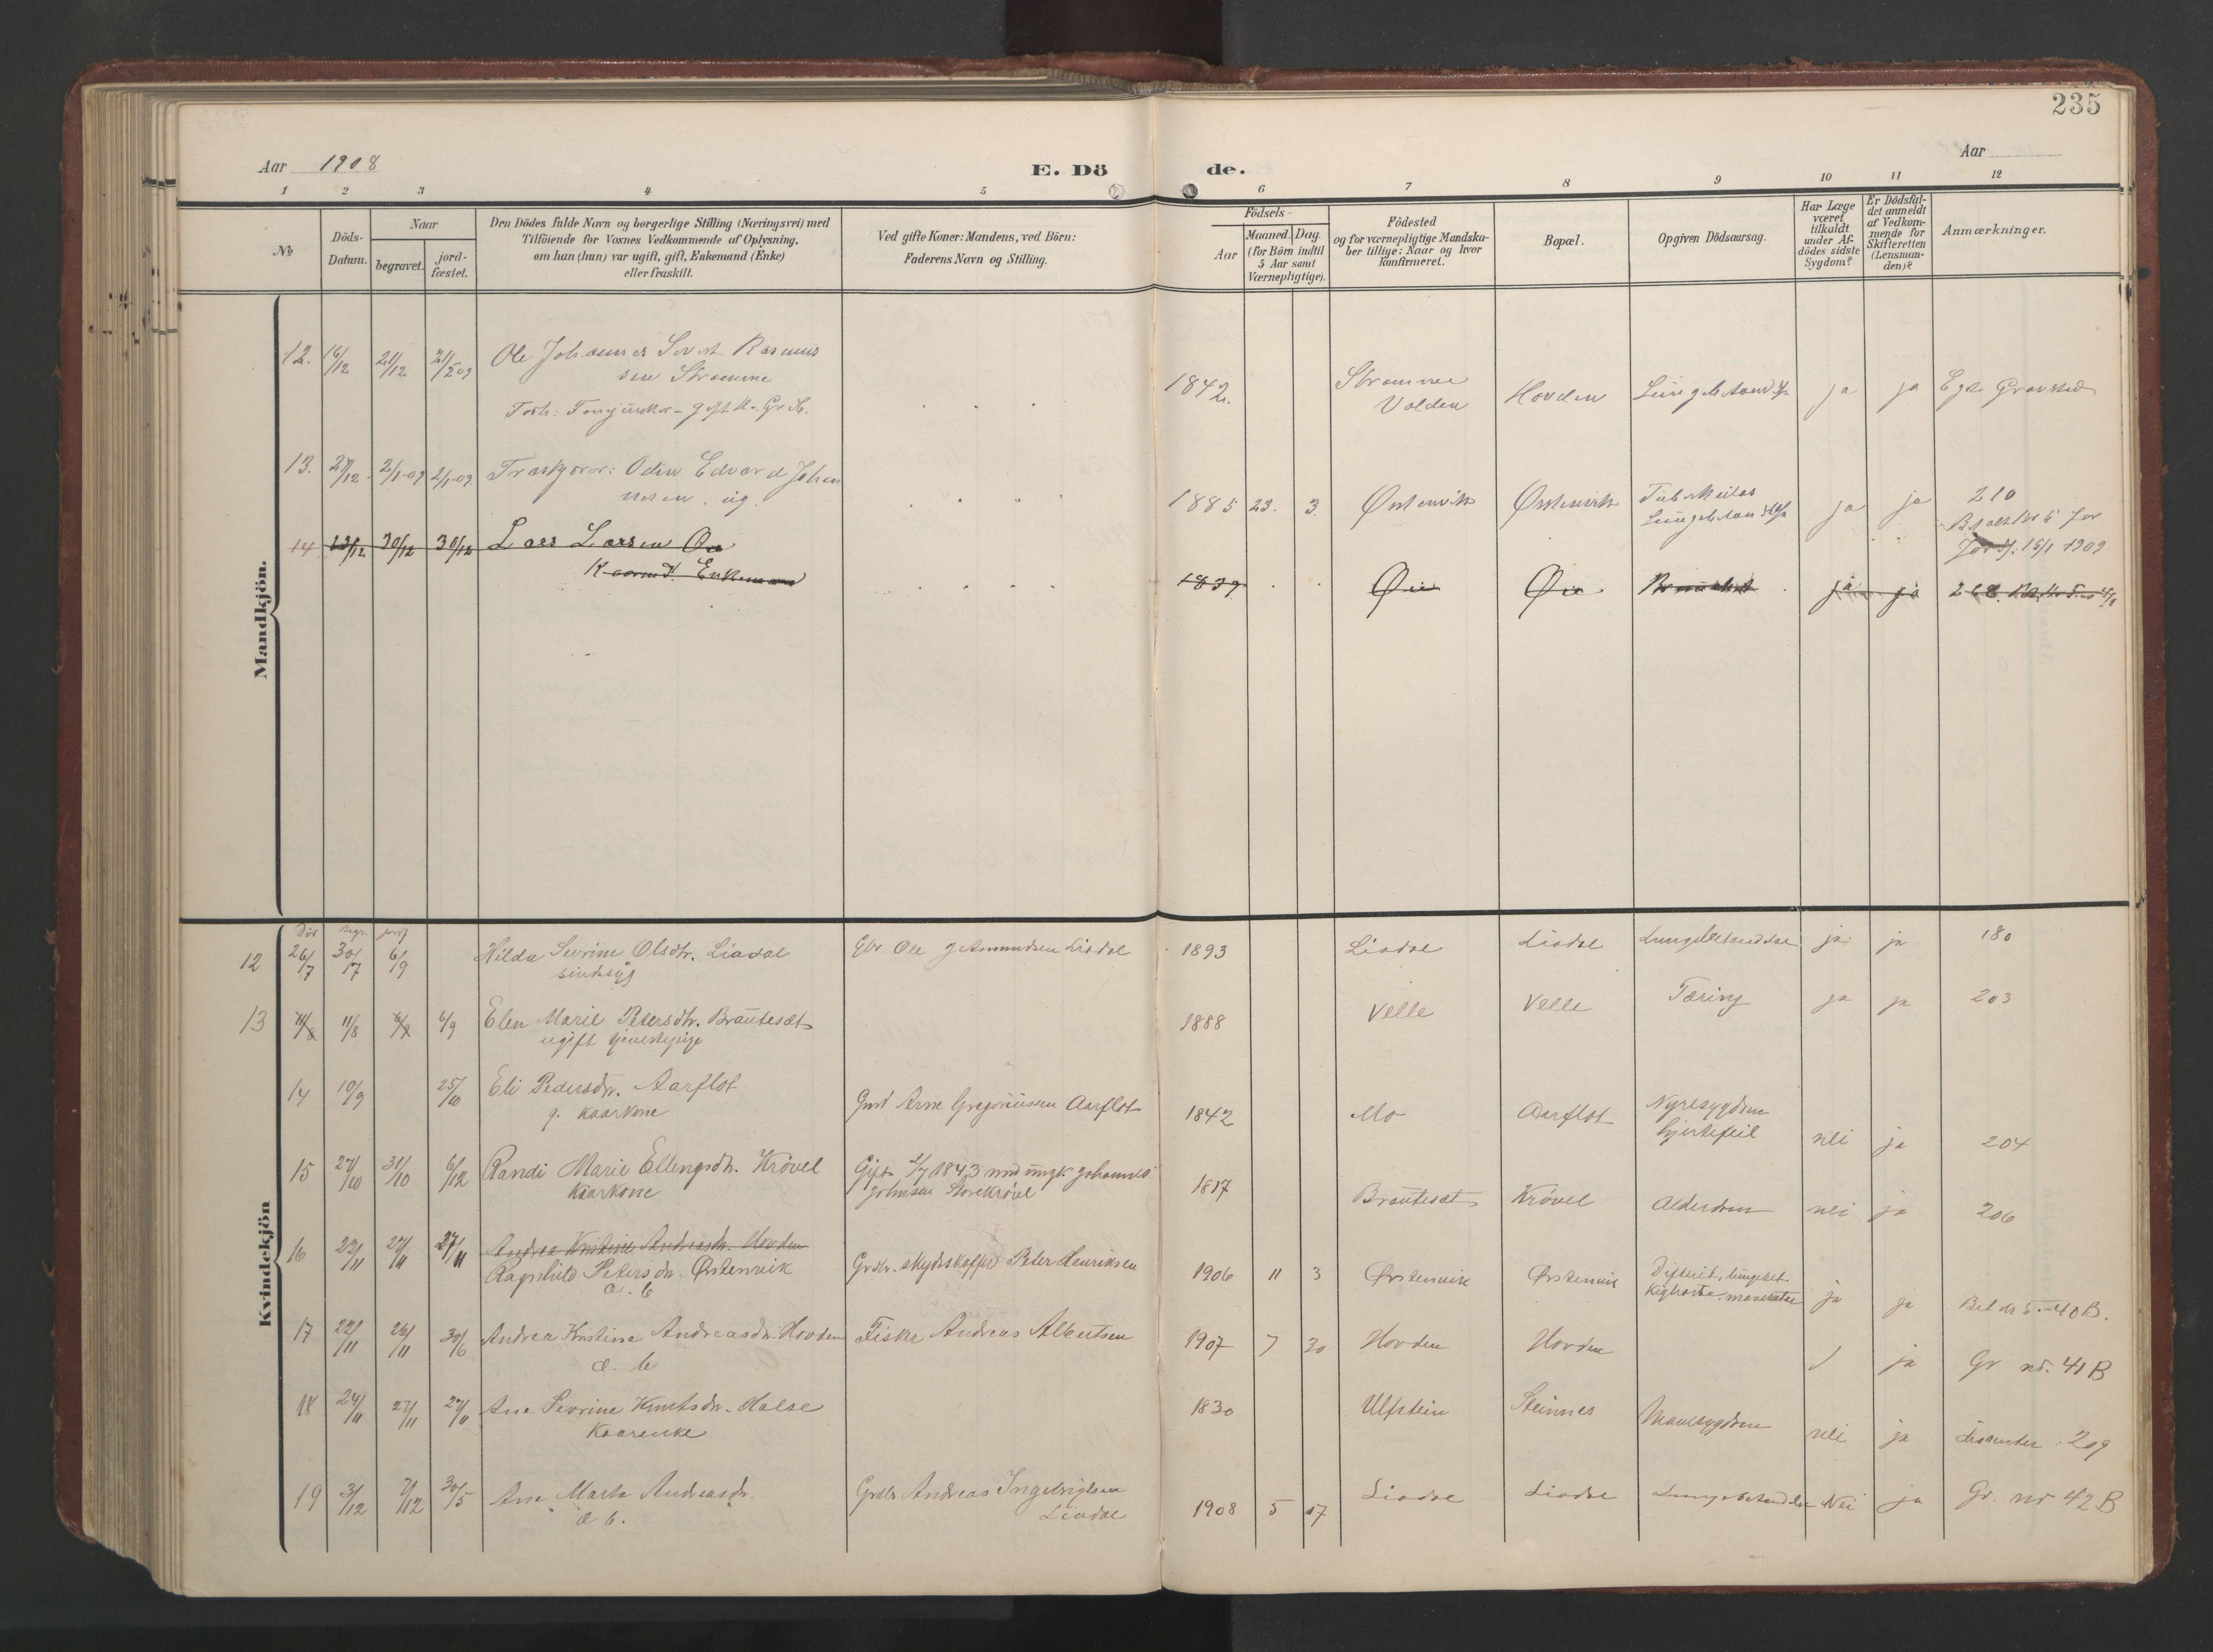 235
Aar 1908
E. Dö de.
Aar
1 2 3 4 5 6 7 8 9 10 11 12
No
Döds-
Datum.
Naar
begravet.
jord-
fæstet.
Den Dödes fulde Navn og borgerlige Stilling (Næringsvei) med
Tilföiende for Voxnes Vedkommende af Oplysning,
om han (hun) var ugift, gift, Enkemand (Enke)
eller fraskilt.
Ved gifte Koner: Mandens, ved Börn:
Faderens Navn og Stilling.
Födsels-
Aar
Maaned. Dag.
(for Börn indtil
5 Aar samt
Værnepligtige).
Födested
og for værnepligtige Mandska-
ber tillige: Naar og hvor
konfirmeret.
Bopæl.
Opgiven Dödsaarsag.
Har Læge
været
tilkaldt
under Af-
dödes sidste
Sygdom?
Er Dödsfal-
det anmeldt
af Vedkom-
mende for
Skifteretten
(Lensman-
den)?
Anmærkninger.
Mandkjön.
12. 16/12 21/12 Ole Johannes Rasmus
sen Strømme
1842 Strømme
Volden Hovden ja ja Egt. Gravsted
13. 27/12 2/1-09 2/1-09 Odin Edvard Johan
nesen. ug.
1885 23. 3. Ørstenvik Ørstenvik Tuberkulos
ja ja 210
15/1 1909
14 30/12 30/12 Lars Larsen
Enkemand
1839 Øie Øie ja ja
Kvindekjön
12 26/7 30/7 6/9 Hilda Sevrine Olsdtr. Liadal
sindsyg
Gbr Ole Amundsen Liadal 1893 Liadal Liadal ja ja 180
13 11/8 6/9 Elen Marie Petersdtr. Brautesæt
ugift tjenestepige
1888 Velle Velle Tæring ja ja 203
14 10/9 25/10 Eli Pedersdtr. Aarflot
g. Kaarkone
Arne Gregoriussen Aarflot 1842 Mo Aarflot Nyresygdom
hjertefeil nei ja 204
15 27/10 31/10 6/12 Randi Marie Ellengsdtr. Krövel
Kaarkone
Gift 2/7 1843 med ungk. Johannes
Johnsen Storekrövel 1817 Brautesæt Krövel Alderdom nei ja 206
16 27/11 27/11 Andrea Kristine Andreasdtr. Hovden
Ragnhild Petersdtr. Ørstenvik
Skydsskaffer Peter Henriksen 1906 11 3 Ørstenvik Ørstenvik Difterit, lungebet.
Kighoste ja ja 40 B.
17 22/11 26/11 30/6 Andrea Kristine Andreasdtr. Hovden
Fisker Andreas Albertsen 1907 7 20 Hovden Hovden ja Gr nr. 41 B
18 24/11 27/11 27/11 Ane Sevrine Knutsdtr. Halse
Kaarenke
1830 Ulfstein Steinnes Mavesygdom nei ja dissenter. 209
19 3/12 7/12 30/5 Ane Marta Andreasdtr.
Andreas Ingebrigtsen
Liadal 1908 5 17 Liadal Liadal Nei ja Gr. nr 42 B